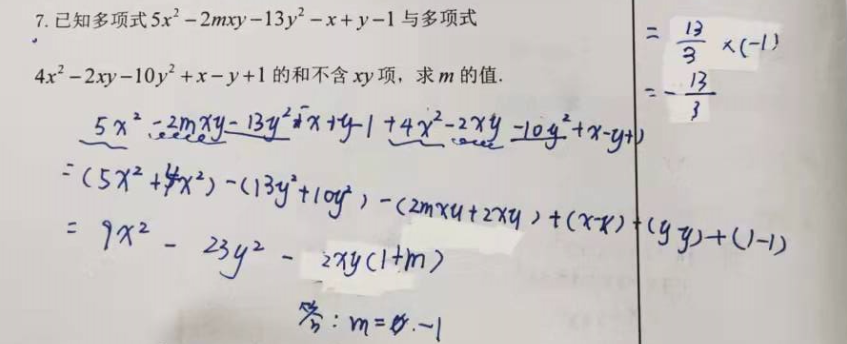 7. 已知多项式 5x² − 2mxy − 13y² − x + y − 1 与多项式
4x² − 2xy − 10y² + x − y + 1 的和不含 xy 项，求 m 的值.
5x² - 2mxy - 13y² - x + y - 1 + 4x² - 2xy - 10y² + x - y + 1
= (5x² + 4x²) - (13y² + 10y²) - (2mxy + 2xy) + (x-x) + (y y) + (1-1)
= 9x² - 23y² - 2xy(1+m)
答: m = -1
= 13/3 × (-1)
= - 13/3